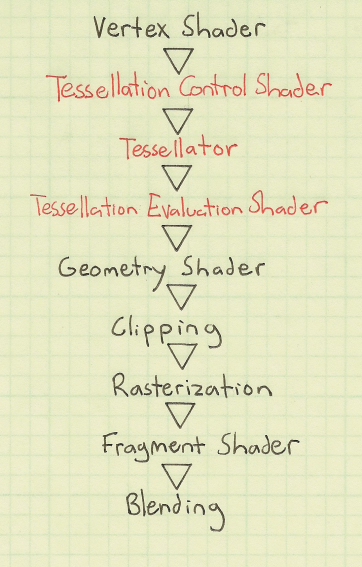 Vertex Shader
Tessellation Control Shader
Tessellator
Tessellation Evaluation Shader
Geometry Shader
Clipping
Rasterization
Fragment Shader
Blending